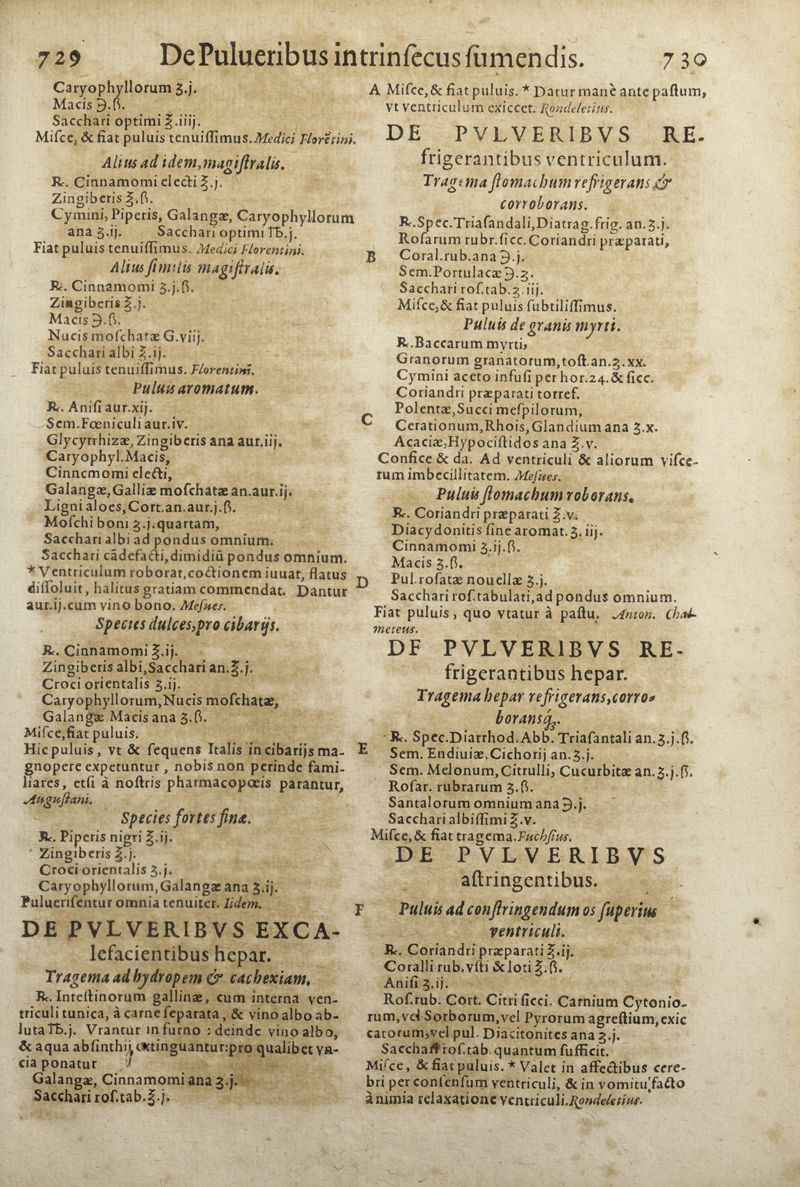 729 De Pulueribus intrinſecus ſumendis. 730
Caryophyllorum ʒ.j.
Macis ℈.ß.
Sacchari optimi ℥.iiij.
Miſce, & fiat puluis tenuiſſimus. Medici Florẽtini.
Alius ad idem, magiſtralis.
℞. Cinnamomi electi ℥.j.
Zingiberis ℥.ß.
Cymini, Piperis, Galangæ, Caryophyllorum
ana ʒ.ij. Sacchari optimi ℔.j.
Fiat puluis tenuiſſimus. Medici Florentini.
Alius ſimilis magiſtralis.
℞. Cinnamomi ʒ.j.ß.
Zingiberis ℥.j.
Macis ℈.ß.
Nucis moſchatæ G.viij.
Sacchari albi ℥.ij.
Fiat puluis tenuiſſimus. Florentini.
Puluis aromatum.
℞. Aniſi aur.xij.
Sem.Fœniculi aur.iv.
Glycyrrhizæ, Zingiberis ana aur.iij.
Caryophyl.Macis,
Cinnemomi electi,
Galangæ, Galliæ moſchatæ an.aur.ij.
Ligni aloes, Cort.an.aur.j.ß.
Moſchi boni ʒ.j.quartam,
Sacchari albi ad pondus omnium.
Sacchari cãdefacti, dimidiũ pondus omnium.
* Ventriculum roborat, coctionem iuuat, flatus
diſſoluit, halitus gratiam commendat. Dantur
aur.ij.cum vino bono. Meſues.
Species dulces, pro cibarijs.
℞. Cinnamomi ℥.ij.
Zingiberis albi, Sacchari an.℥.j.
Croci orientalis ʒ.ij.
Caryophyllorum, Nucis moſchatæ,
Galangæ Macis ana ʒ.ß.
Miſce, fiat puluis.
Hic puluis, vt & ſequens Italis in cibarijs ma-
gnopere expetuntur, nobis non perinde fami-
liares, etſi à noſtris pharmacopœis parantur,
Auguſtani.
Species fortes finæ.
℞. Piperis nigri ℥.ij.
Zingiberis ℥.j.
Croci orientalis ʒ.j.
Caryophyllorum, Galangæ ana ʒ.ij.
Pulueriſentur omnia tenuiter. Iidem.
DE PVLVERIBVS EXCA-
lefacientibus hepar.
Tragema ad hydropem & cachexiam.
℞. Inteſtinorum gallinæ, cum interna ven-
triculi tunica, à carne ſeparata, & vino albo ab-
luta ℔.j. Vrantur in furno : deinde vino albo,
& aqua abſinthij extinguantur: pro qualibet vn-
cia ponatur
Galangæ, Cinnamomi ana ʒ.j.
Sacchari roſ.tab.℥.j.
A Miſce, & fiat puluis. * Datur manè ante paſtum,
vt ventriculum exiccet. Rondeletius.
DE PVLVERIBVS RE-
frigerantibus ventriculum.
Tragema ſtomachum refrigerans &
corroborans.
℞. Spec.Triaſandali, Diatrag.frig. an.ʒ.j.
Roſarum rubr.ſicc.Coriandri præparati,
B Coral.rub.ana ℈.j.
Sem.Portulacæ ℈.ʒ.
Sacchari roſ.tab.ʒ.iij.
Miſce, & fiat puluis ſubtiliſſimus.
Puluis de granis myrti.
℞. Baccarum myrti,
Granorum granatorum, toſt.an.ʒ.xx.
Cymini aceto infuſi per hor.24.& ſicc.
Coriandri præparati torref.
Polentæ, Succi meſpilorum,
C Cerationum, Rhois, Glandium ana ʒ.x.
Acaciæ, Hypociſtidos ana ℥.v.
Confice & da. Ad ventriculi & aliorum viſce-
rum imbecillitatem. Meſues.
Puluis ſtomachum roborans.
℞. Coriandri præparati ℥.v.
Diacydonitis ſine aromat.ʒ.iij.
Cinnamomi ʒ.ij.ß.
Macis ʒ.ß.
D Pul.roſatæ nouellæ ʒ.j.
Sacchari roſ.tabulati, ad pondus omnium.
Fiat puluis, quo vtatur à paſtu. Anton. Chal-
meteus.
DE PVLVERIBVS RE-
frigerantibus hepar.
Tragema hepar refrigerans, corro-
boransq́;.
℞. Spec.Diarrhod.Abb. Triaſantali an.ʒ.j.ß.
E Sem. Endiuiæ, Cichorij an.ʒ.j.
Sem. Melonum, Citrulli, Cucurbitæ an.ʒ.j.ß.
Roſar. rubrarum ʒ.ß.
Santalorum omnium ana ℈.j.
Sacchari albiſſimi ℥.v.
Miſce, & fiat tragema. Fuchſius.
DE PVLVERIBVS
aſtringentibus.
F Puluis ad conſtringendum os ſuperius
ventriculi.
℞. Coriandri præparati ℥.ij.
Coralli rub.vſti & loti ℥.ß.
Aniſi ʒ.ij.
Roſ.rub. Cort. Citri ſicci. Carnium Cytonio-
rum, vel Sorborum, vel Pyrorum agreſtium, exic
catorum, vel pul. Diacitonites ana ʒ.j.
Sacchari roſ.tab.quantum ſufficit.
Miſce, & fiat puluis. * Valet in affectibus cere-
bri per conſenſum ventriculi, & in vomitu, facto
à nimia relaxatione ventriculi. Rondeletius.